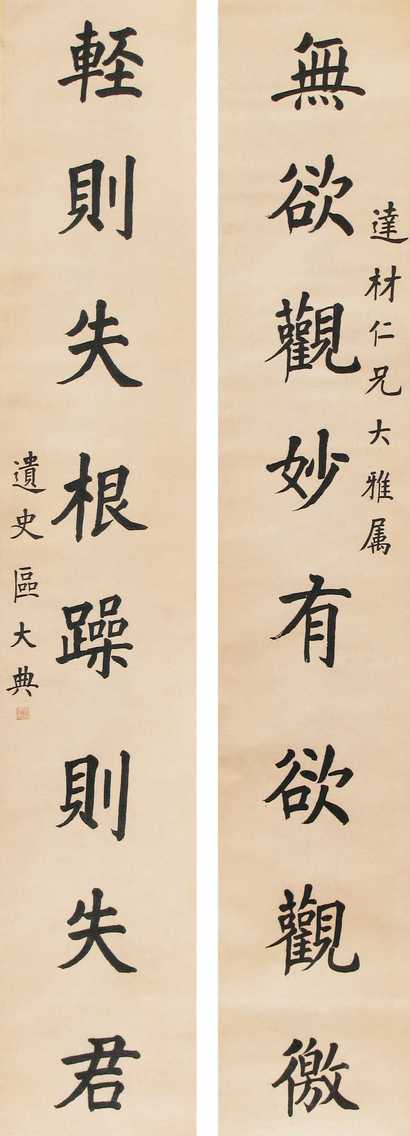 達材仁兄大雅属
無欲觀妙有欲觀徼
軽則失根躁則失君
遺史區大典